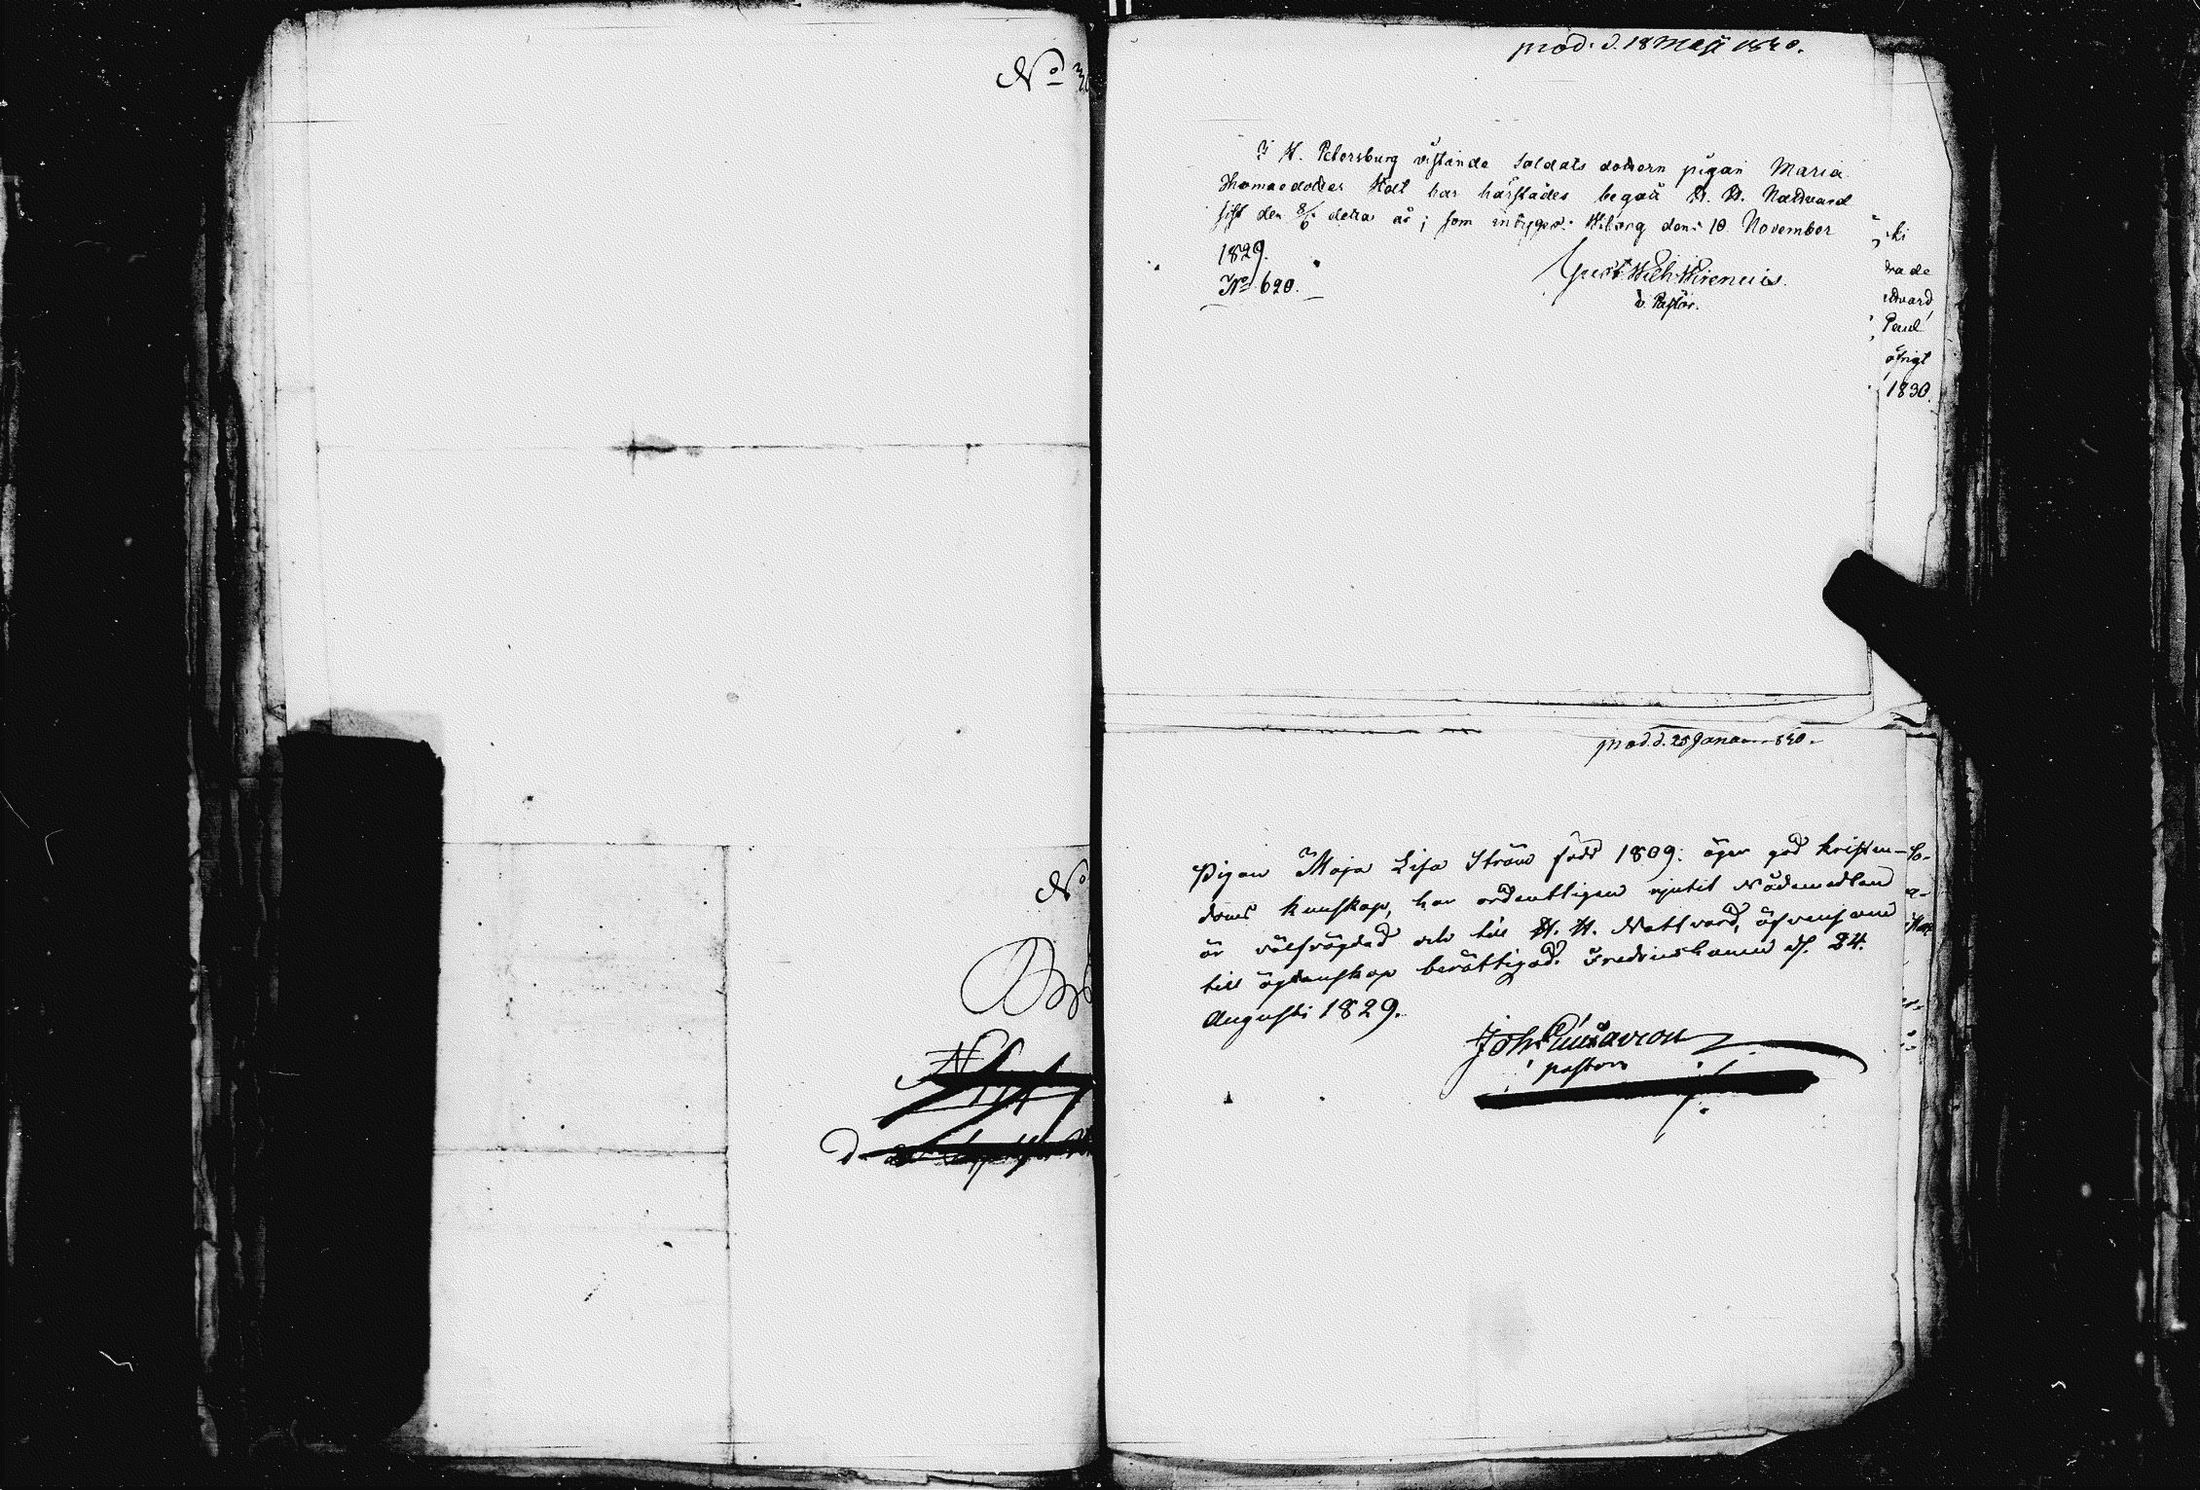 No 3
No
prod. d. 18 Maji 1830.
I St. Petersburg vistande Soldats dottern pigan Maria
Thomaedotter har härstädes begått H. H. Nattvard
sist den 8/6 detta år; som intygar. Wiborg den 10 November
1829.
No 620.
Gust. Wilh. Wirenius.
v. Pastor.
ki
rade
ttvard
Paul
öfrigt
1830.
prod. d. 25 Janu 830.
Pigan Maja Lisa Ström född 1809: äger god Kristen-
doms kunskap, har ordentligen njutit Nådemedlen
är välfrägdad och till H. H. Nattvard, äfvensom
till ägtenskap berättigad. Fredrikshamn d. 24.
Augusti 1829.
Joh.
pastor